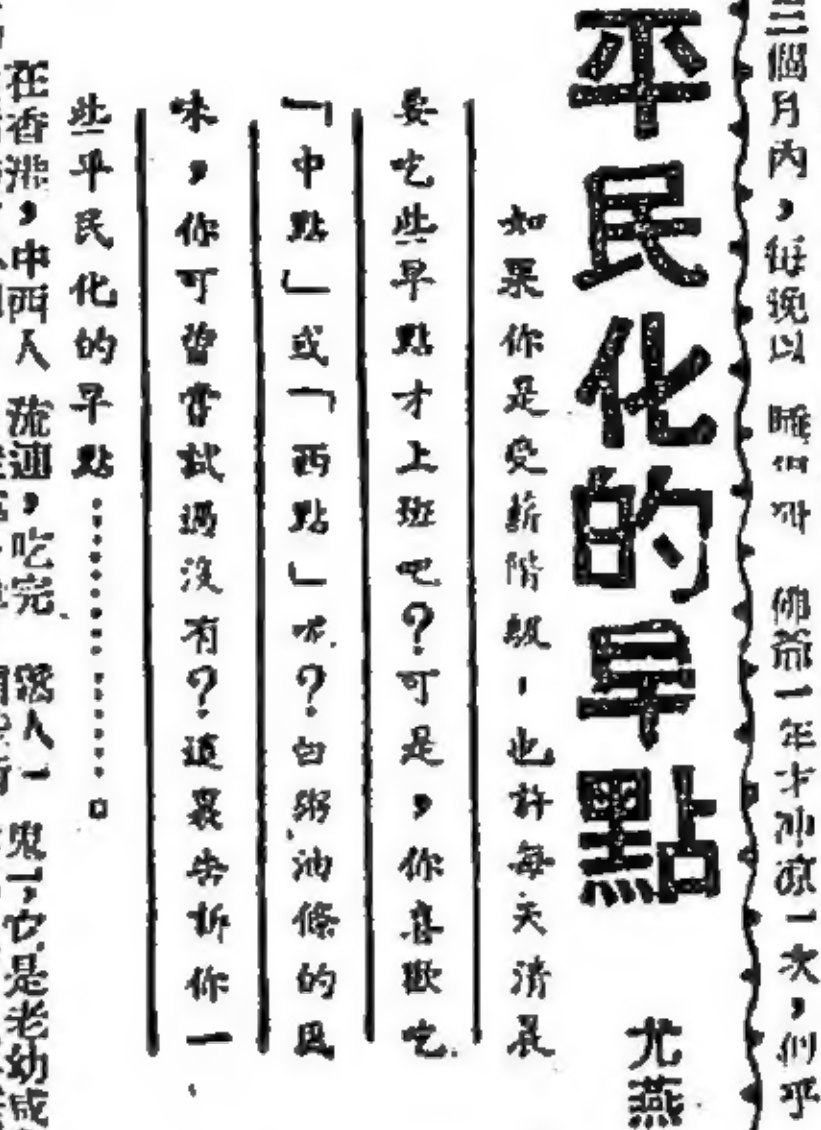 三個月內，每晚以
爺一年才沖涼一次，
平民化的早點
尤燕
如果你是受薪階級，也許每天清晨
要吃些早點才上班吧？可是，你喜歡吃
「中點」或「西點」呢？白粥油條的風
味，你可曾嘗試過沒有？這裏告訴你一
些平民化的早點………………□
在香港，中西人
流通，吃完
鬼一，它是老幼咸